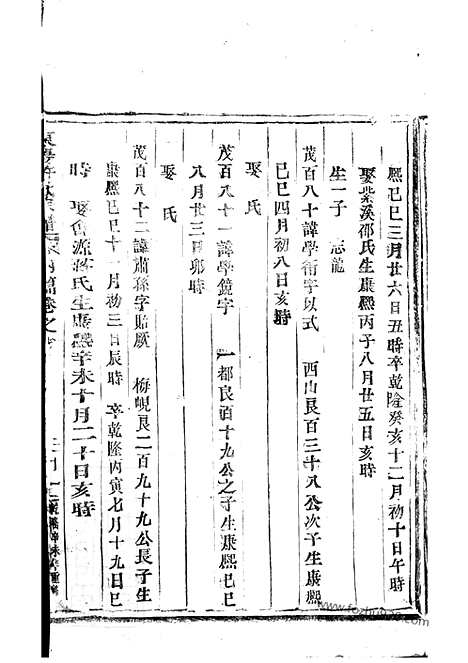 熙己巳三月廿六日丑時卒乾隆癸亥十二月初十日午時
娶紫溪邵氏生康熙丙子八月廿五日亥時
生一子 志龍
茂百八十諱學衛字以式 西山良百三十八公次子生康熙
己巳四月初八日亥時
娶 氏
茂百八十一諱學鏡字 一都良百十九公之子生康熙己巳
八月廿三日卯時
娶 氏
茂百八十二諱肅孫字貽厥 梅峴良二百九十九公長子生
康熙己巳十一月初三日辰時 卒乾隆丙寅七月十九日巳
時 娶會源蔣氏生康熙辛未十月二十日亥時
氏 內篇卷之